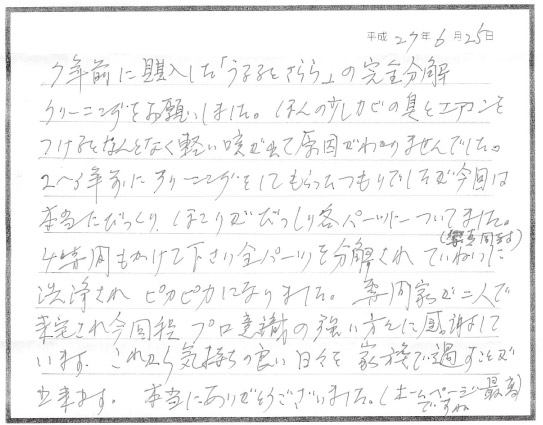 平成 27年 6月 25日
7年前に購入した「うるるとさらら」の完全分解
クリーニングをお願いしました。ほんの少しカビの臭とエアコンを
つけるとなんとなく軽い咳が出て原因がわかりませんでした。
2〜3年前にクリーニングをしてもらったつもりでしたが今回は
本当にびっくり、ほこりがびっしり各パーツについてました。
4時間もかけて下さり全パーツを分解され ていねいに
洗浄され ピカピカになりました。専門家が二人で
来宅され今回程 プロ意識の強い方々に感謝して
います。これから気持ちの良い日々を家族で過すことが
出来ます。本当にありがとうございました。(ホームページ最高
ですね)